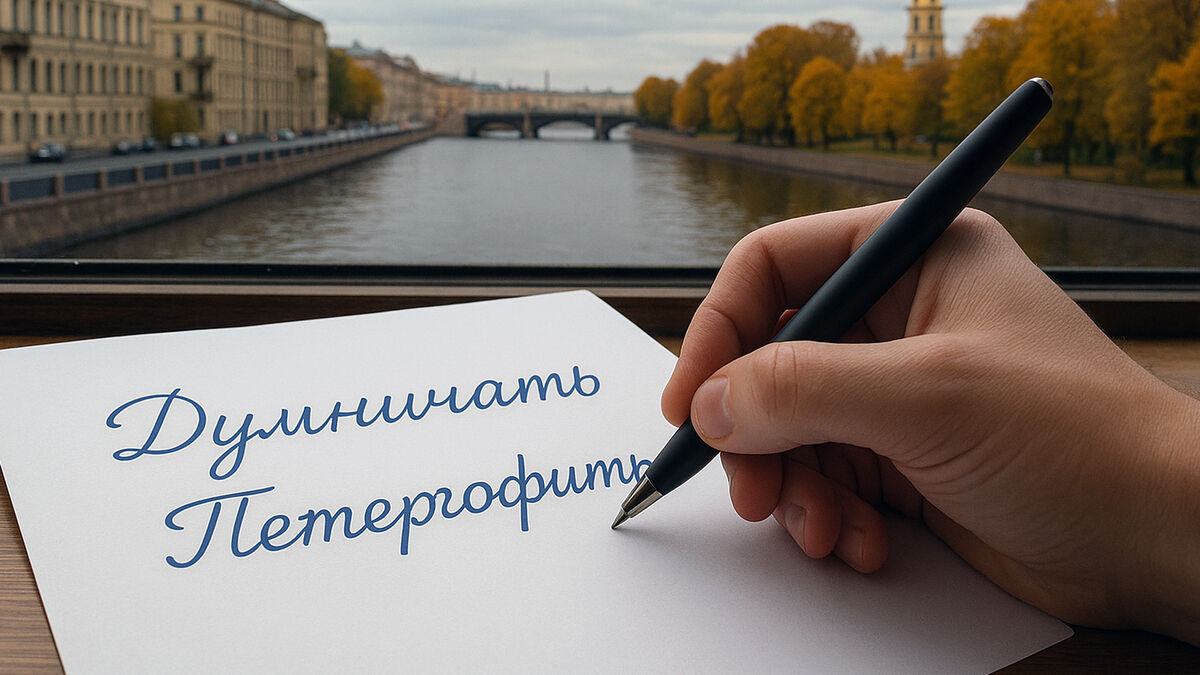 Думничать
Петергофить